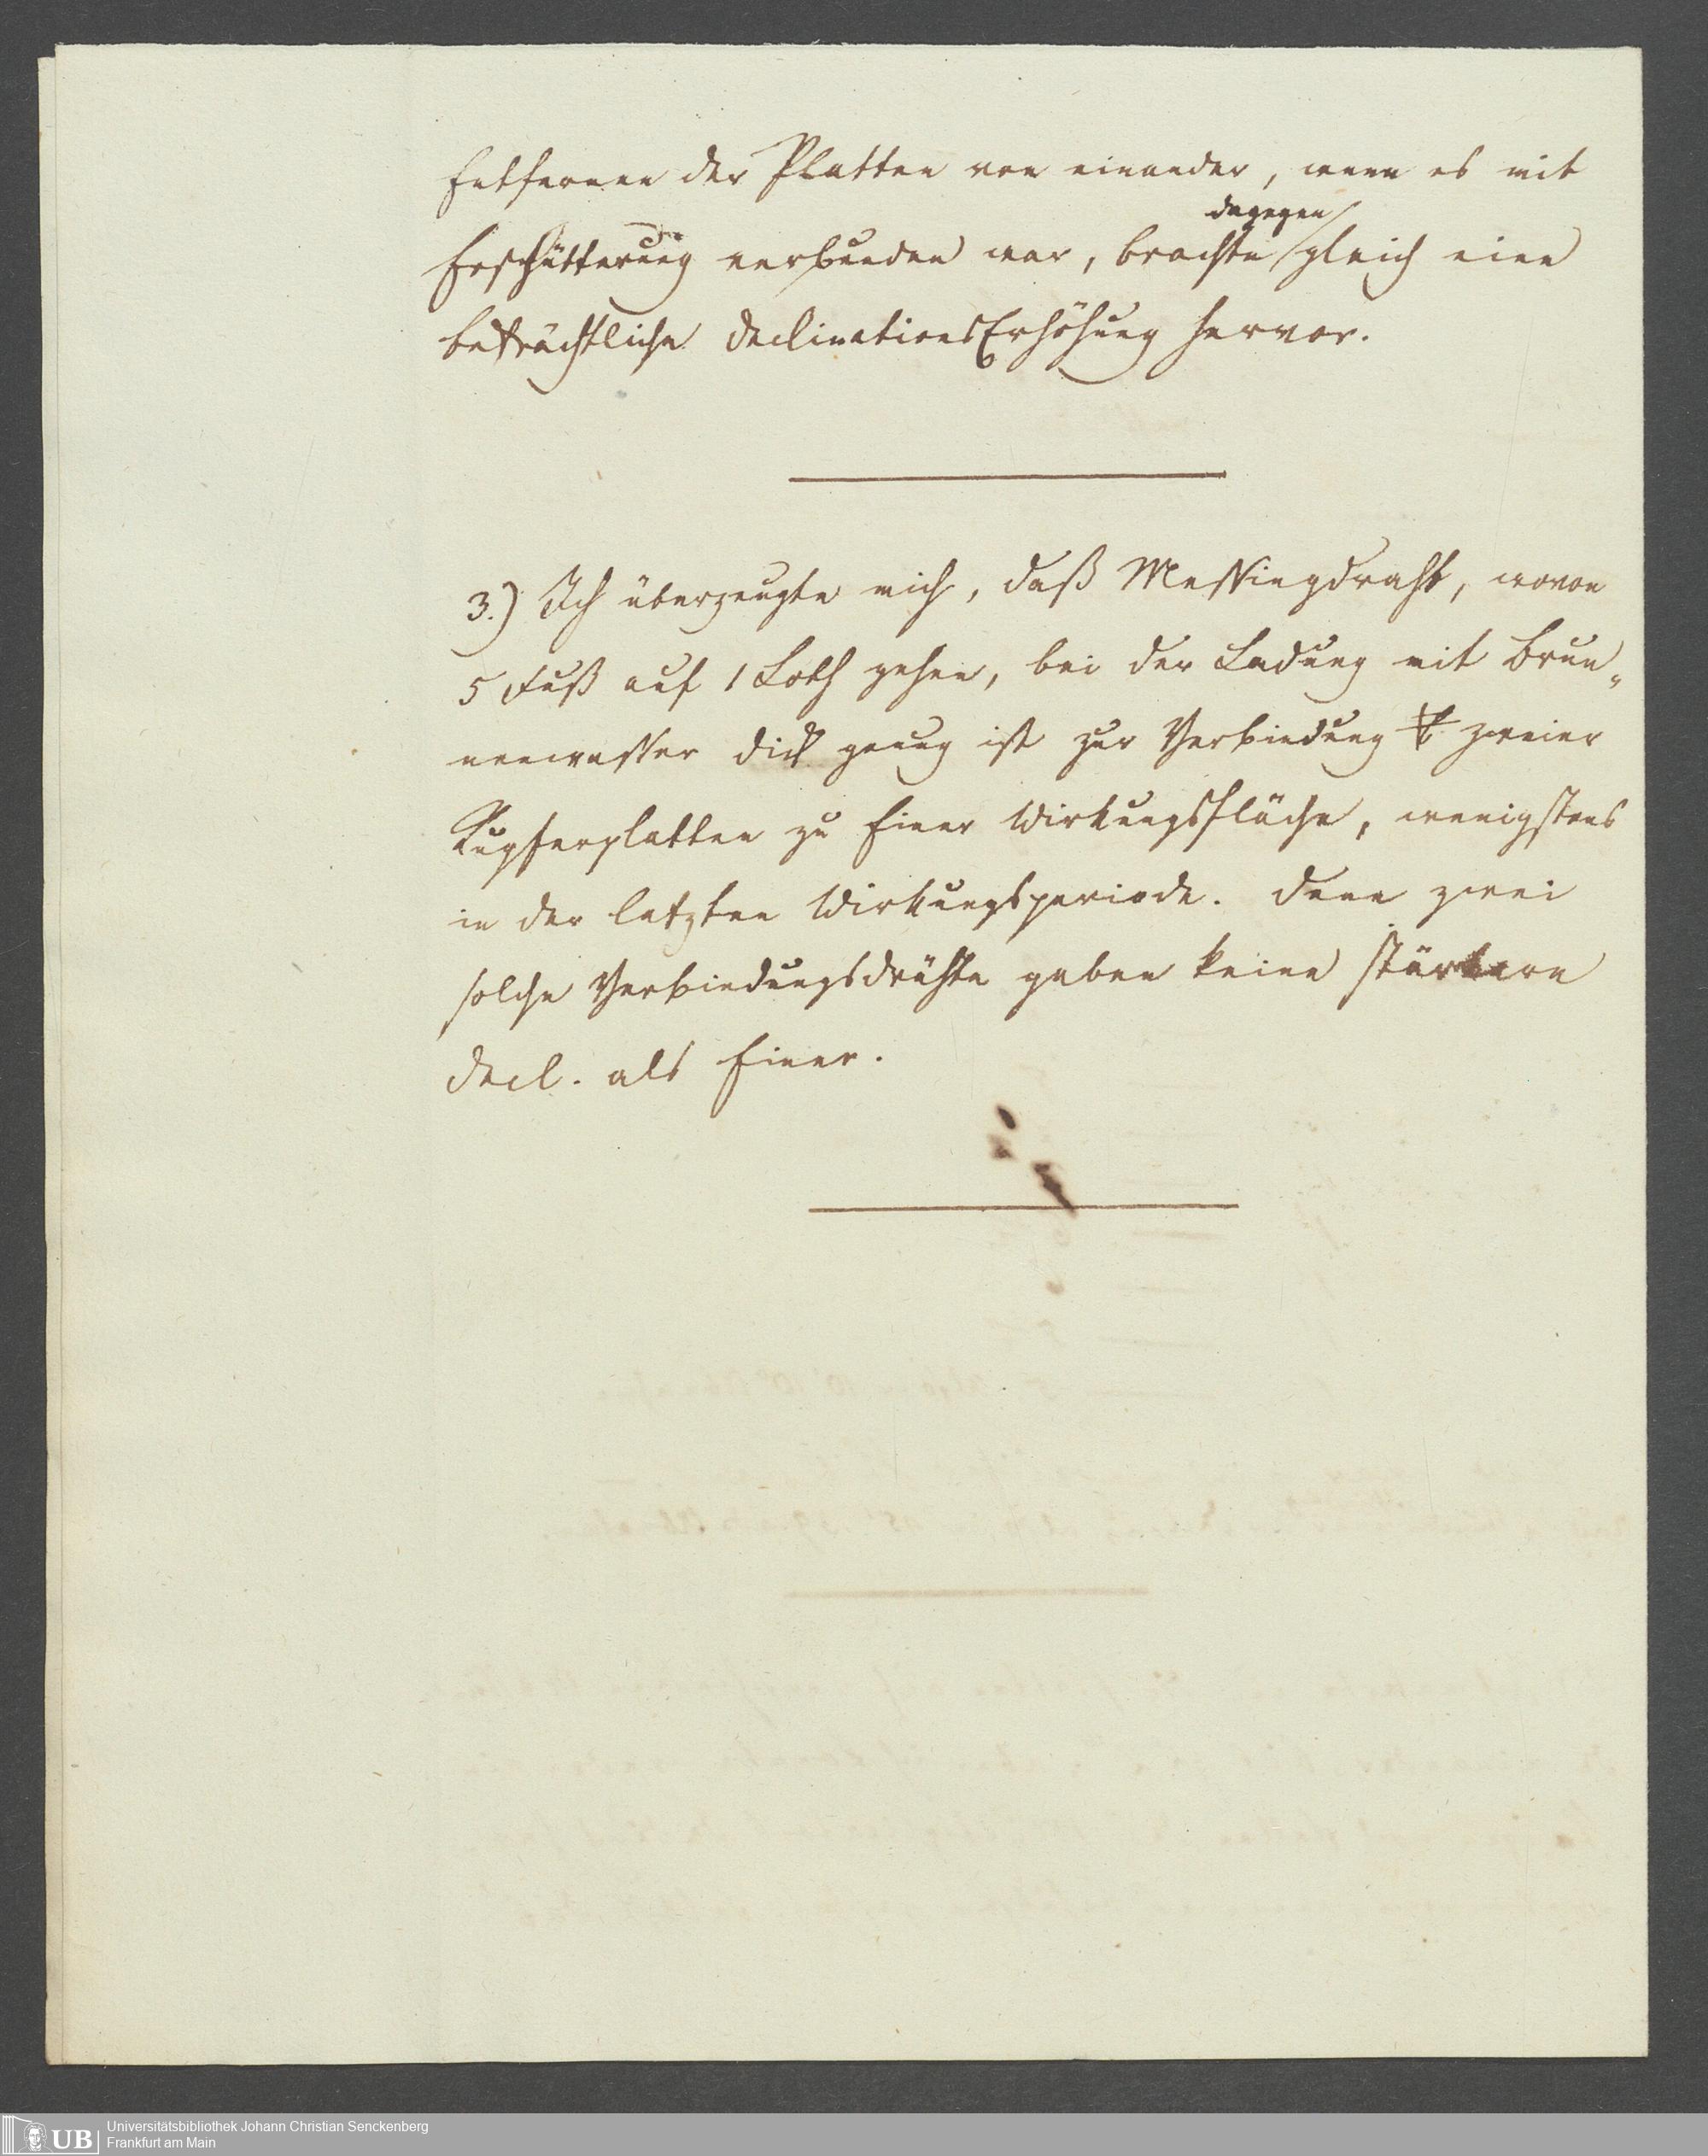 Entfernen der Platten von einander, wenn es mit
dagegen
Erschütterung verbunden war, brachte gleich eine
beträchtliche DeclinationsErhöhung hervor.
3.) Ich überzeugte mich, daß Messingdraht, wovon
5 Fuß auf 1 Loth gehen, bei der Ladung mit Brun„
nenwasser dick genug ist zur Verbindung zweier
Kupferplatten zu Einer Wirkungsfläche, wenigstens
in der letzten Wirkungsperiode. Denn zwei
solche Verbindungsdrähte gaben keine stärkere
Decl. als Einer.
UB Universitätsbibliothek Johann Christian Senckenberg
Frankfurt am Main